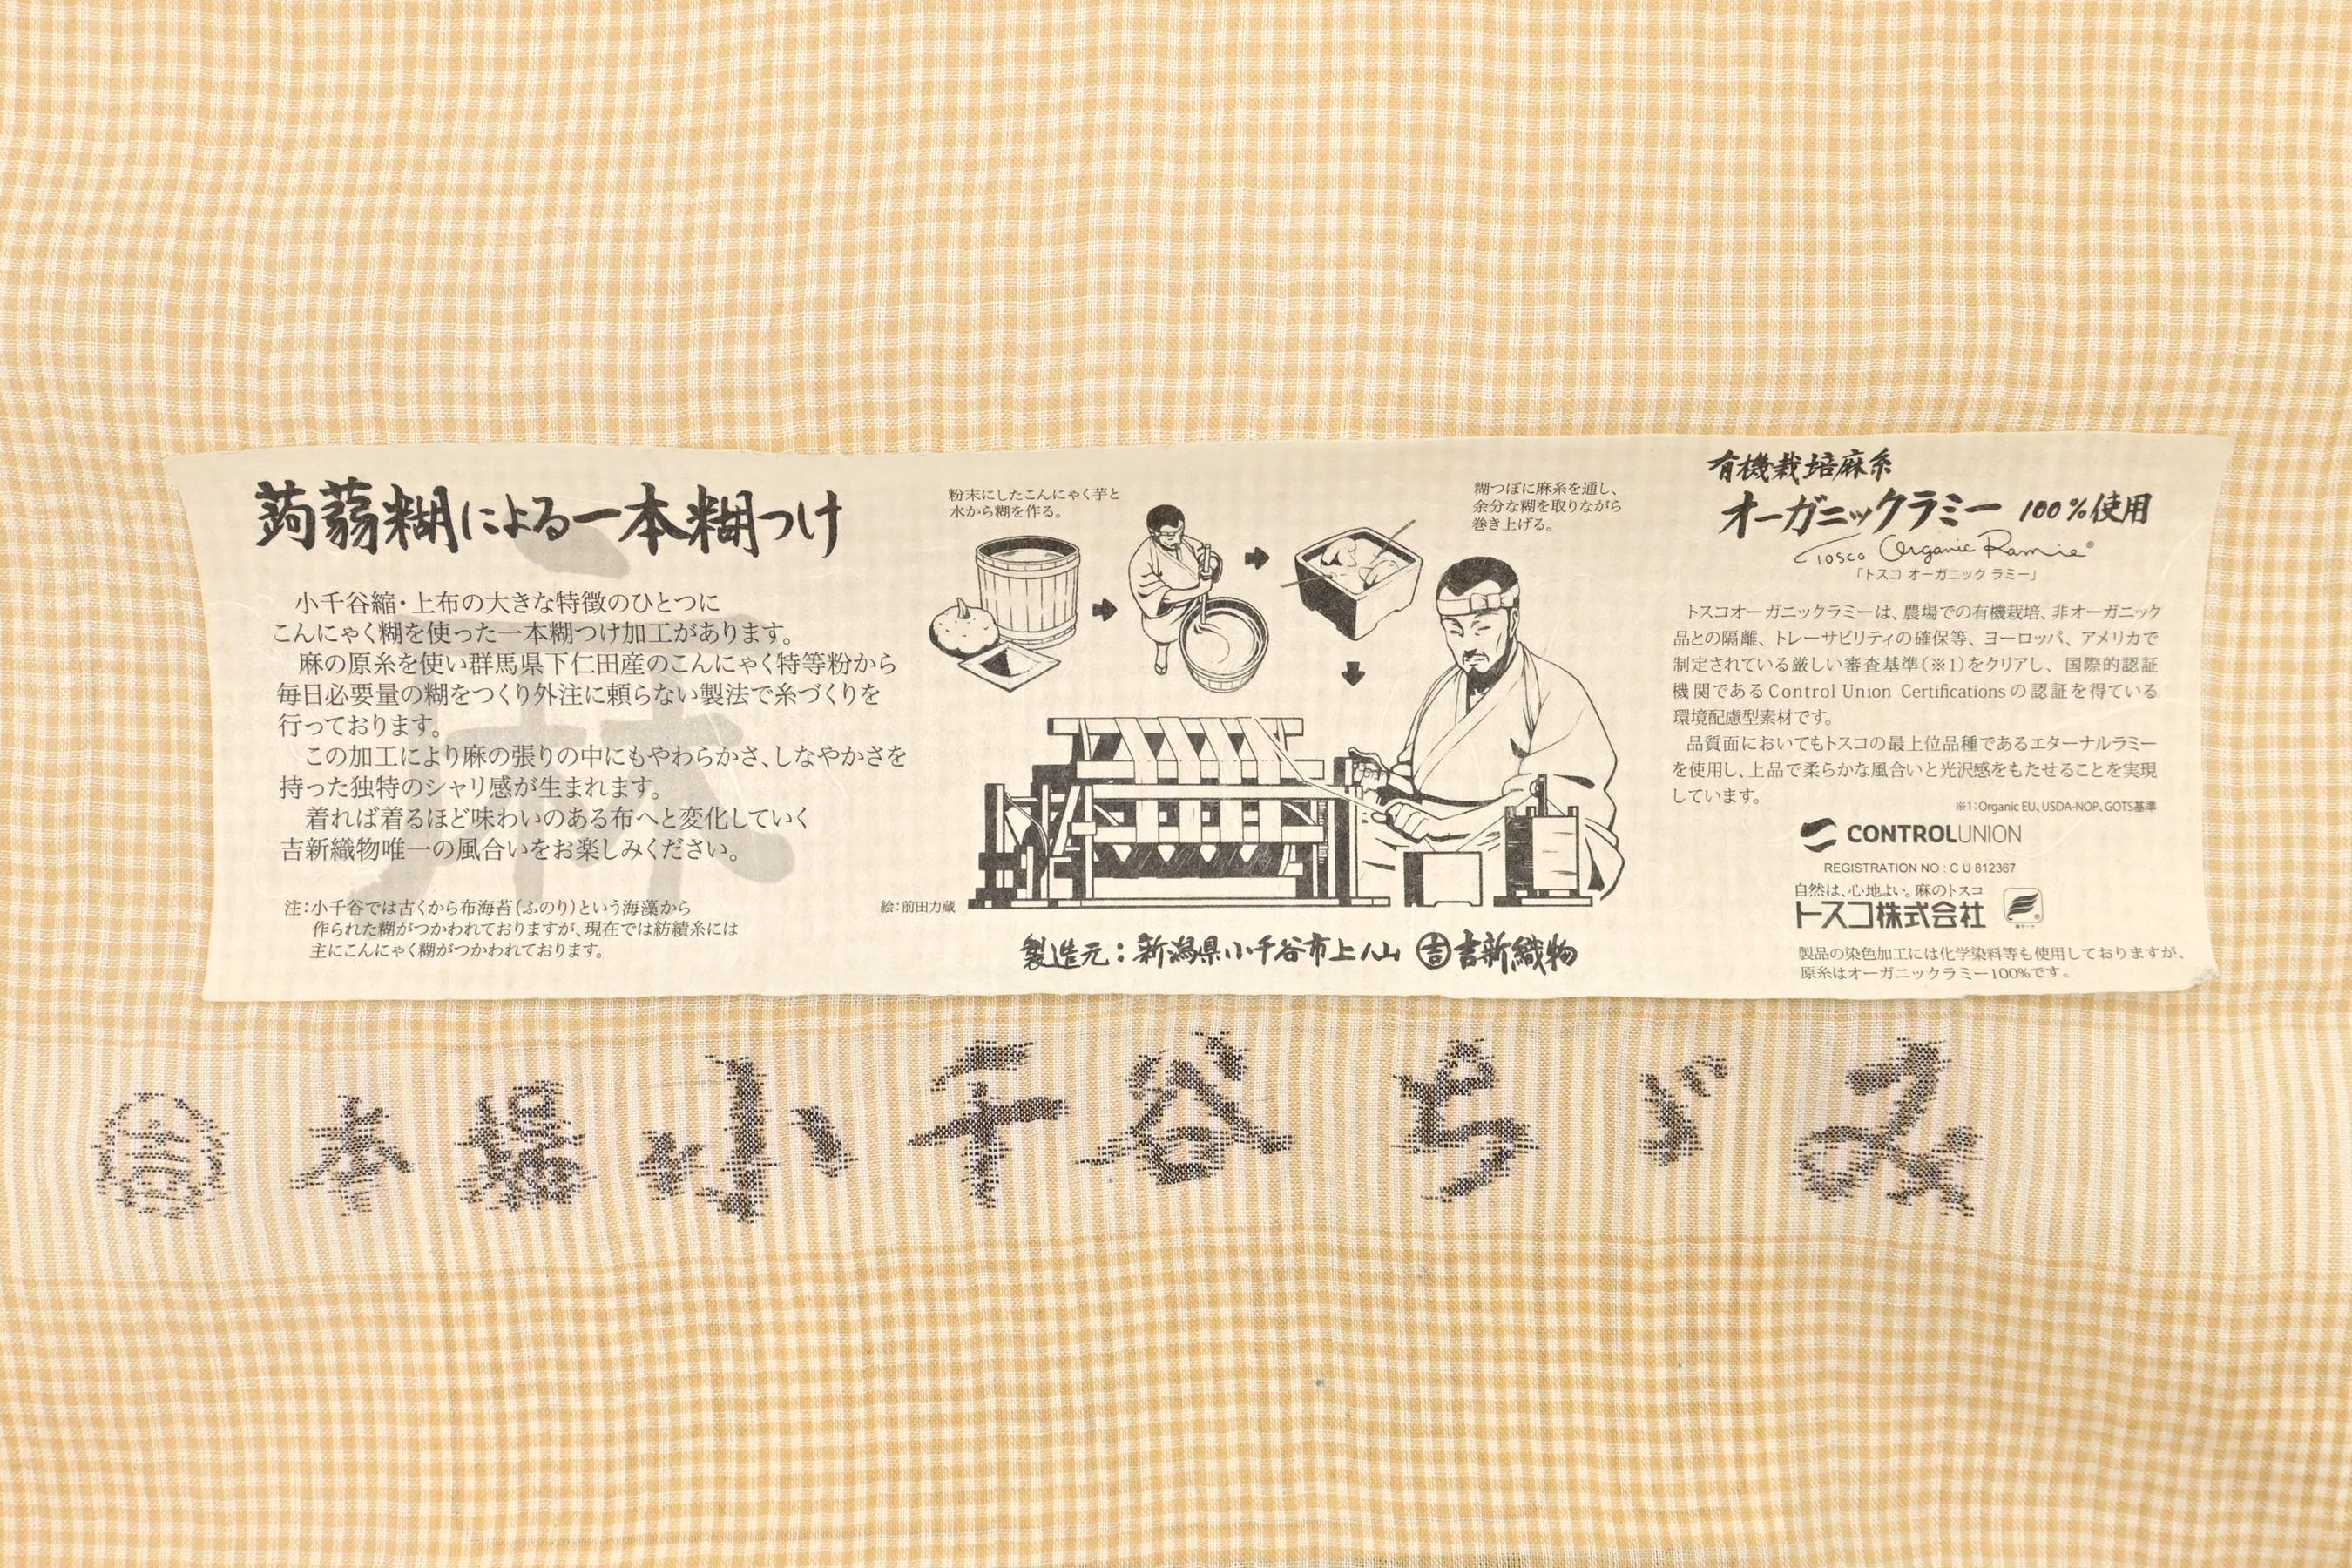 蒟蒻糊による一本糊つけ
小千谷縮・上布の大きな特徴のひとつに
こんにゃく糊を使った一本糊つけ加工があります。
麻の原糸を使い群馬県下仁田産のこんにゃく特等粉から
毎日必要量の糊をつくり外注に頼らない製法で糸づくりを
行っております。
この加工により麻の張りの中にもやわらかさ、しなやかさを
持った独特のシャリ感が生まれます。
着れば着るほど味わいのある布へと変化していく
吉新織物唯一の風合いをお楽しみください。
注:小千谷では古くから布海苔(ふのり)という海藻から
作られた糊がつかわれておりますが、現在では紡績糸には
主にこんにゃく糊がつかわれております。
麻
粉末にしたこんにゃく芋と
水から糊を作る。
糊つぼに麻糸を通し、
余分な糊を取りながら
巻き上げる。
絵:前田力蔵
製造元:新潟県小千谷市上ノ山 吉 吉新織物
有機栽培麻糸
オーガニックラミー 100%使用
Tosco Organic Ramie®
「トスコ オーガニック ラミー」
トスコオーガニックラミーは、農場での有機栽培、非オーガニック
品との隔離、トレーサビリティの確保等、ヨーロッパ、アメリカで
制定されている厳しい審査基準(※1)をクリアし、国際的認証
機関であるControl Union Certificationsの認証を得ている
環境配慮型素材です。
品質面においてもトスコの最上位品種であるエターナルラミー
を使用し、上品で柔らかな風合いと光沢感をもたせることを実現
しています。
※1:Organic EU、USDA-NOP、GOTS基準
CONTROLUNION
REGISTRATION NO : C U 812367
自然は、心地よい。麻のトスコ
トスコ株式会社
製品の染色加工には化学染料等も使用しておりますが、
原糸はオーガニックラミー100%です。
吉 本場小千谷ちぢみ